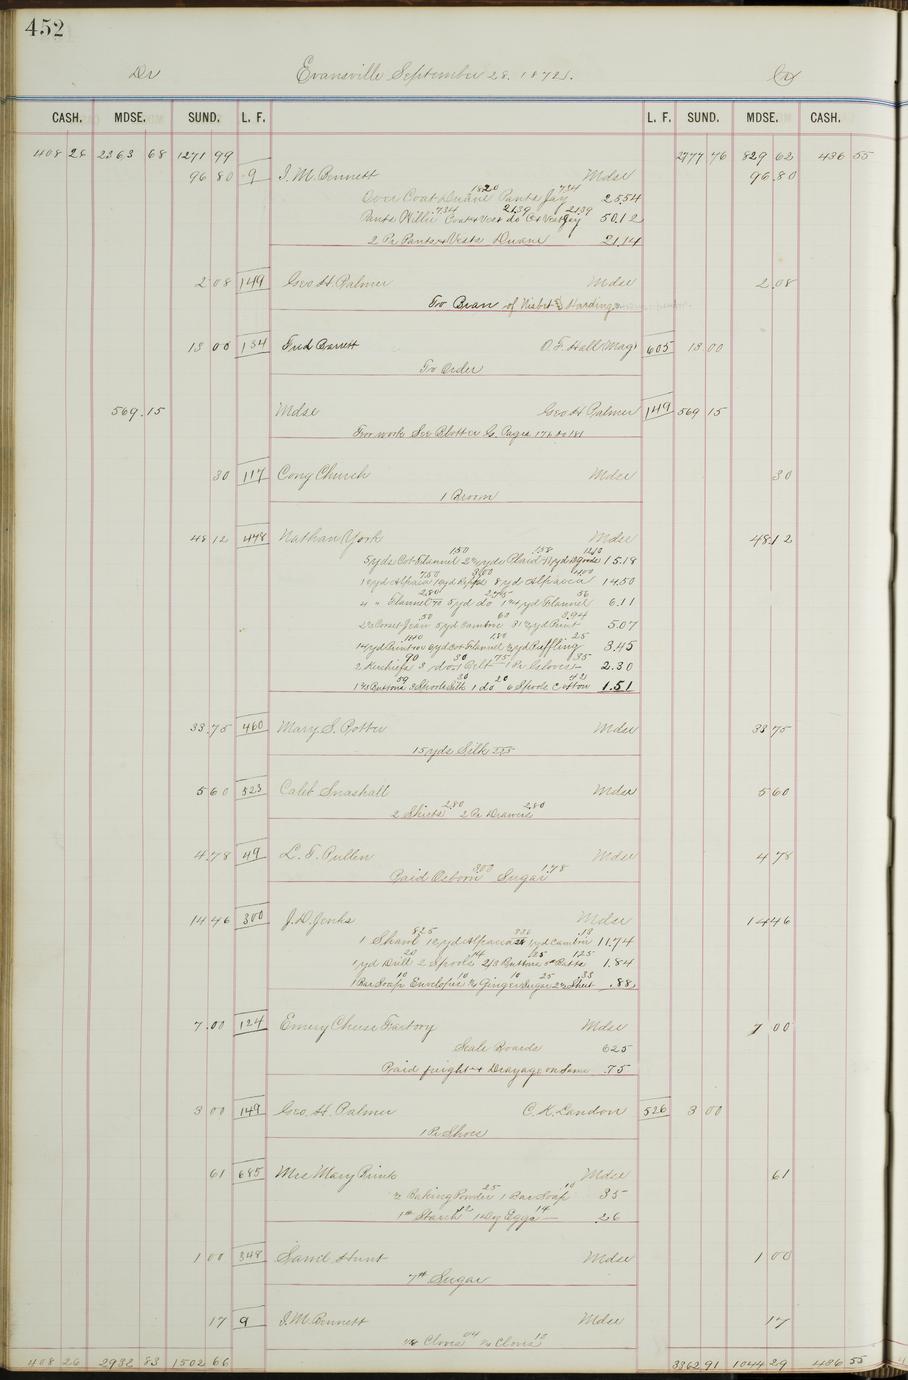 452
Dr Evansville September 28. 1872. Cr
CASH. MDSE. SUND. L. F. L. F. SUND. MDSE. CASH.
408 26 2363 68 1271 99 2777 76 829 62 436 55
96 80 9 I. M. Bennett Mdse 96.80
Over Coat Duane 18.20 Pants Jay 7.34 25.54
Pants Willie 7.34 Coat & Vest do 21.39 Ct & Vest Jay 21.39 50.12
2 Pr Pants & Vests Duane 21.14
2 08 149 Geo H. Palmer Mdse 2.08
For Bran of Nisbet & Harding
13 00 134 Fred Barrett O. F. Hall Mag' 605 13 00
Per Order
569.15 Mdse Geo H Palmer 149 569 15
For work See Blotter G. Pages 176 to 181
30 117 Cong Church Mdse 30
1 Broom
48 12 478 Nathan York Mdse 48.12
5 yds Cot Flannel 1.50 Plaid 1.58 15.18
Alpaca 7.50 8 yd Alpacca 4.00 14.50
4 " Flannel 2.80 5 yd do 2.75 Flannel 56 6.11
Corset Jean 50 5 yd Cambric 60 31½ yd Print 3.94 5.07
14 yd Print 1.40 6 yd Cot Flannel 1.80 ½ yd Ruffling 25 3.45
2 Kerchiefs 90 3 do 30 1 Belt 75 1 Pr Gloves 35 2.30
Buttons 59 3 Spools Silk 30 1 do 20 6 Spools Cotton 42 1.51
33.75 460 Mary S. Potter Mdse 33 75
15 yds Silk 2.25
5 60 523 Caleb Snashall Mdse 5 60
2 Shirts 2.80 2 Pr Drawers 2.80
4.78 49 L. T. Pullen Mdse 4 78
Paid Osborn 3.00 Sugar 1.78
14.46 300 J. D. Jenks Mdse 14 46
1 Shawl 8.25 12 yd Alpacca 1 yd Cambric .13 11.74
1 yd Drill 20 2 Spools 14 2/3 Buttons 25 Batts 1.25 1.84
1 Bar Soap 10 Envelopes 10 Ginger 10 Sugar 25 Sheet 33 .88
7.00 124 Emery Cheese Factory Mdse 7 00
Scale Boards 6.25
Paid freight & Drayage on Same .75
3 00 149 Geo. H. Palmer C. H. Landon 526 3 00
1 Pr Shoes
61 685 Mrs Mary Brink Mdse 61
½ Baking Powder 25 1 Bar Soap 10 35
1# Starch 12 1 Doz Eggs 14 26
1 00 348 Saml Hunt Mdse 1 00
7# Sugar
17 9 I. M. Bennett Mdse 17
Cloves 04 Cloves 13
408 26 2932 83 1502 66 3362 91 1044 29 436 55